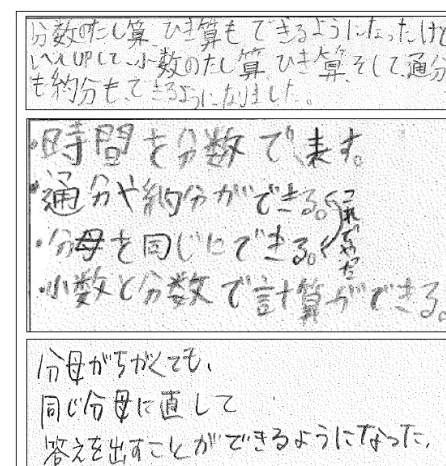 分数のたし算、ひき算も できるようになったけど
UPして、小数のたし算、ひき算、そして、通分
も約分も、できるようになりました。
・時間を分数で、表す。
・通分や約分ができる。
・分母を同じにできる。
これでやった
・小数と分数で計算ができる。
分母がちがくても、
同じ分母に直して
答えを出すことができるようになった。